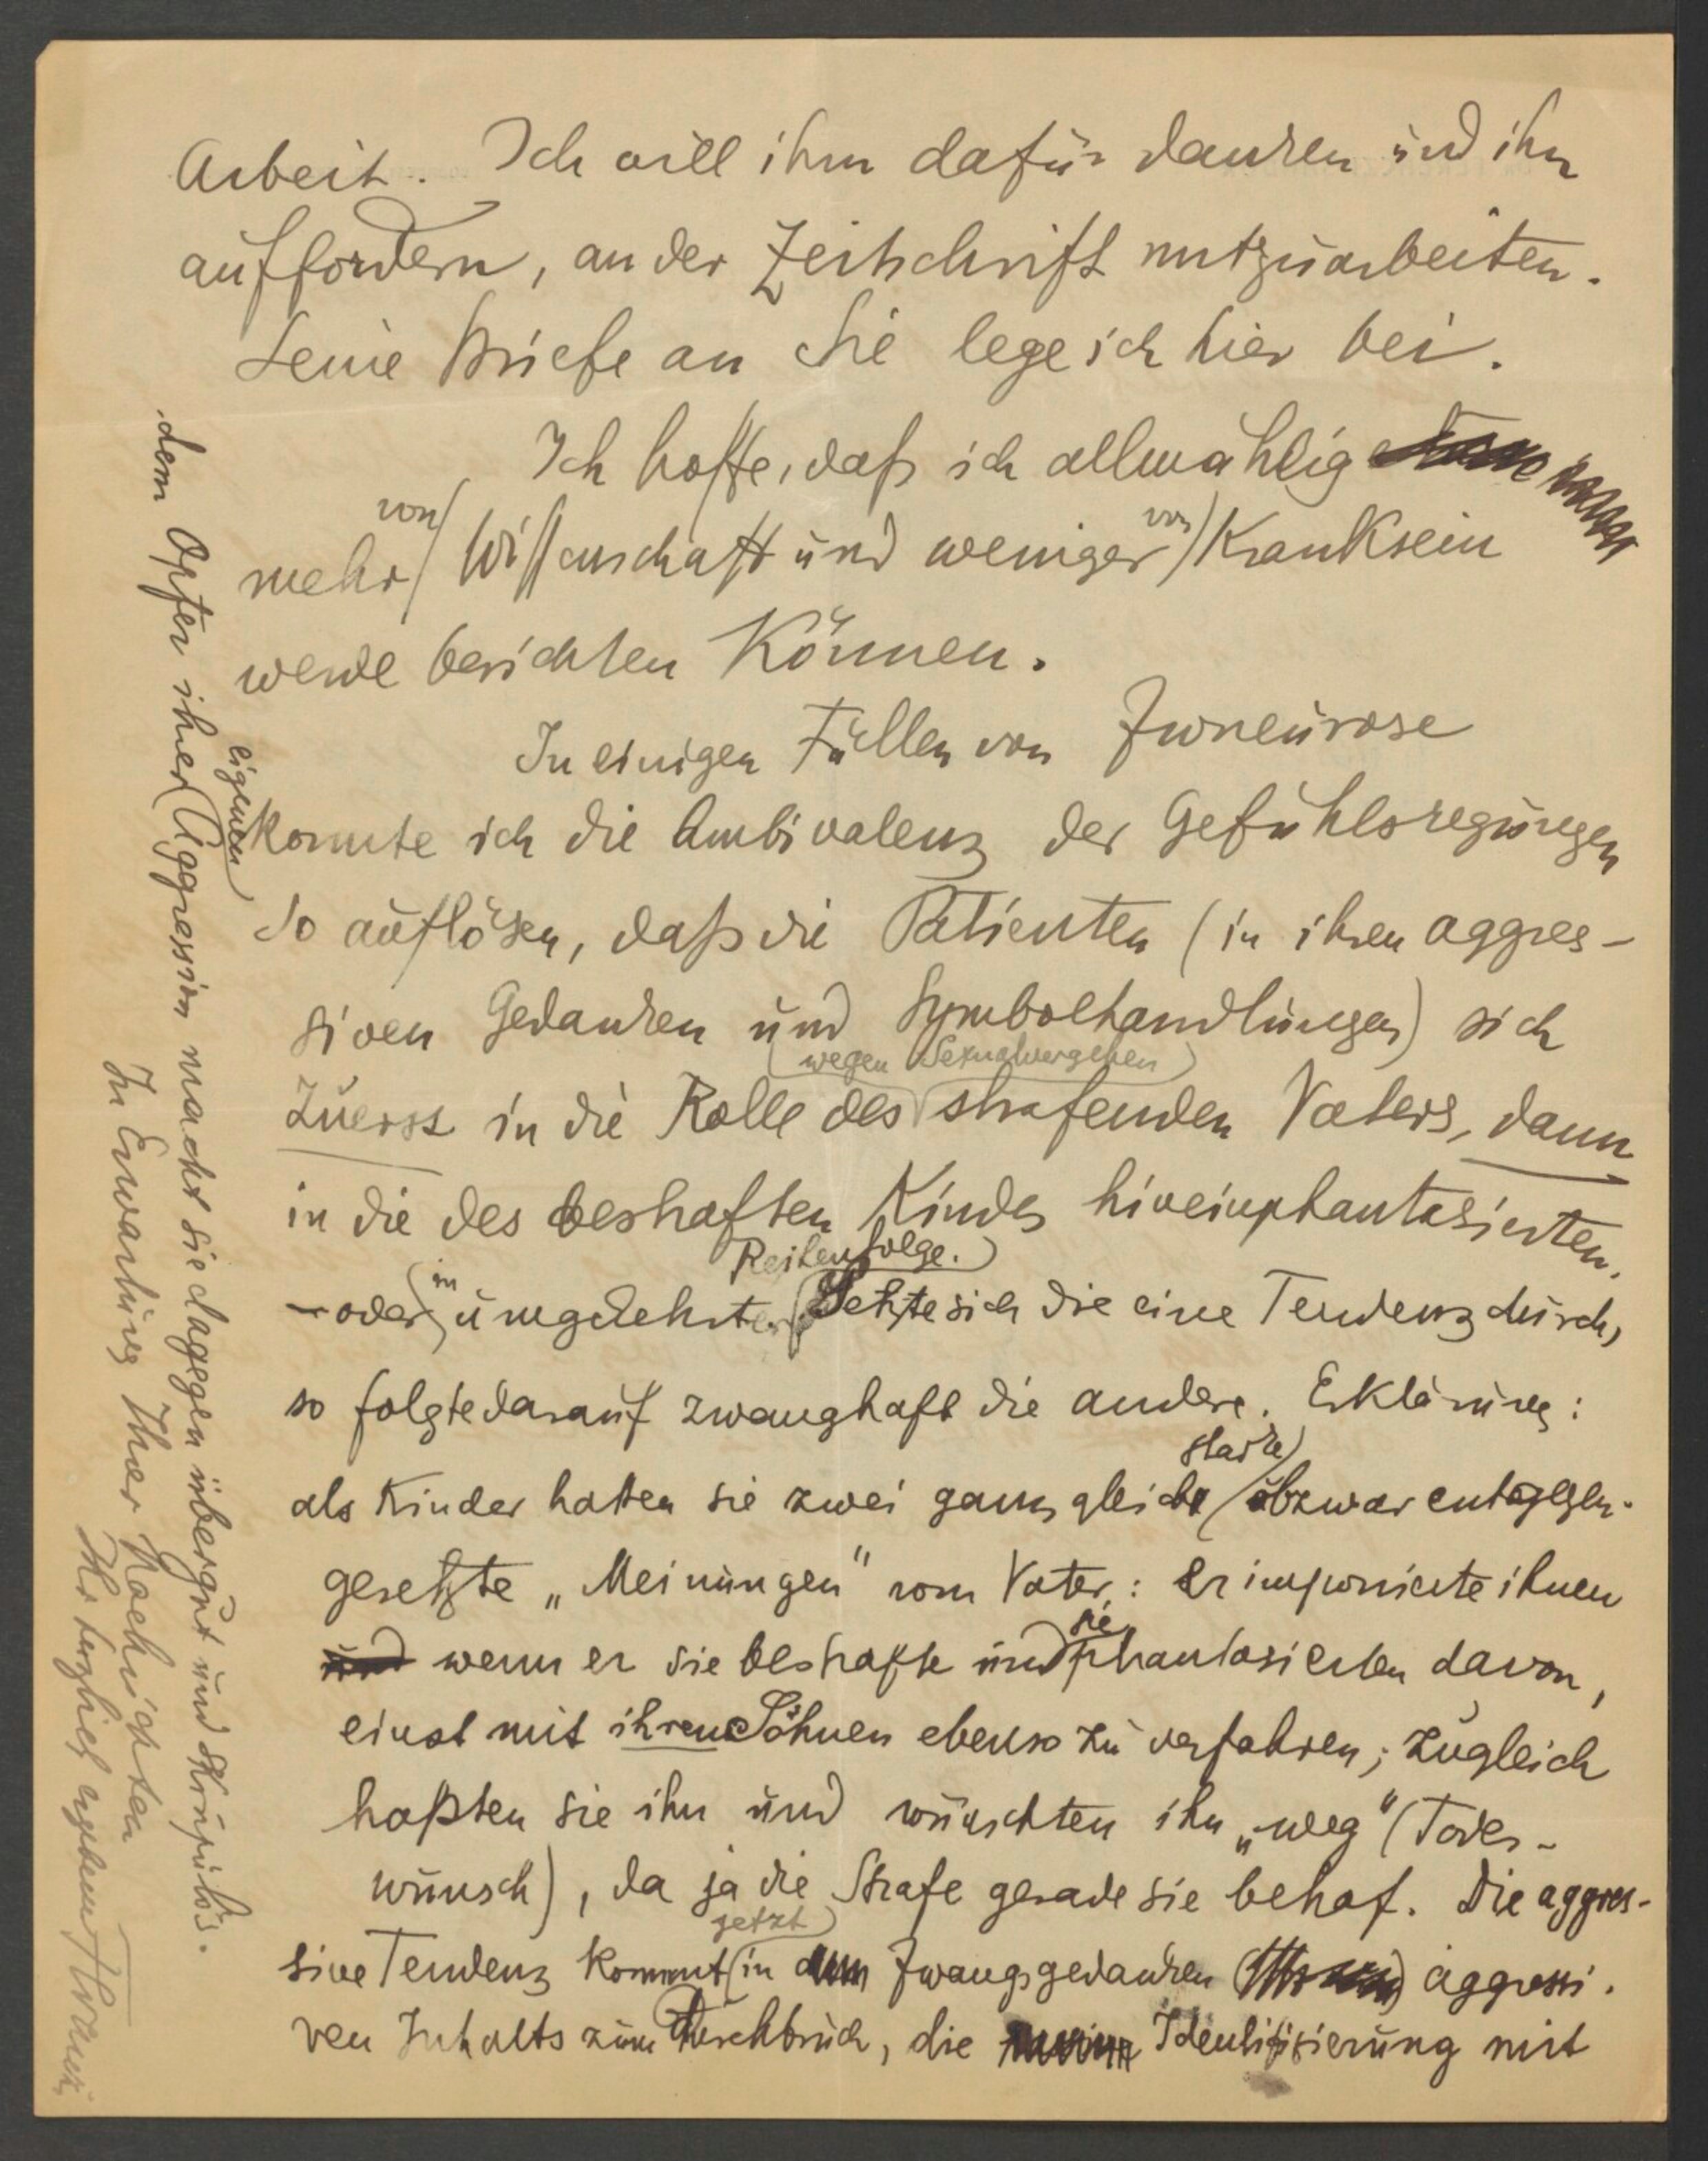 Arbeit. Ich will ihm dafür danken und ihn
auffordern, an der Zeitschrift mitzuarbeiten.
Seine Briefe an Sie lege ich hier bei.
Ich hoffe, daß ich allmählig
mehr von Wissenschaft und weniger von Kranksein
werde berichten können.
In einigen Fällen von Zwneurose
konnte ich die Ambivalenz der Gefühlsregungen
so auflösen, daß die Patienten (in ihren aggres-
siven Gedanken und Symbolhandlungen) sich
zuerst in die Rolle des (wegen Sexualvergehen) strafenden Vaters, dann
in die des bestraften Kindes hineinphantasierten,
– oder in umgekehrter Reihenfolge. Setzte sich die eine Tendenz durch,
so folgte darauf zwanghaft die andere. Erklärung:
als Kinder hatten sie zwei ganz gleich starke obzwar entgegen-
gesetzte „Meinungen" vom Vater: Er imponierte ihnen
wenn er sie bestrafte und sie phantasierten davon,
einst mit ihren Söhnen ebenso zu verfahren; zugleich
haßten sie ihn und wünschten ihn „weg" (Todes-
wunsch), da ja die Strafe gerade sie betraf. Die aggres-
sive Tendenz kommt jetzt in den Zwangsgedanken aggressi-
ven Inhalts zum Durchbruch, die Identifizierung mit
dem Opfer ihrer eigenen Aggression macht sie dagegen übergut und skrupulös.
In Erwartung Ihrer Nachrichten
Ihr herzlich ergebener Ferenczi